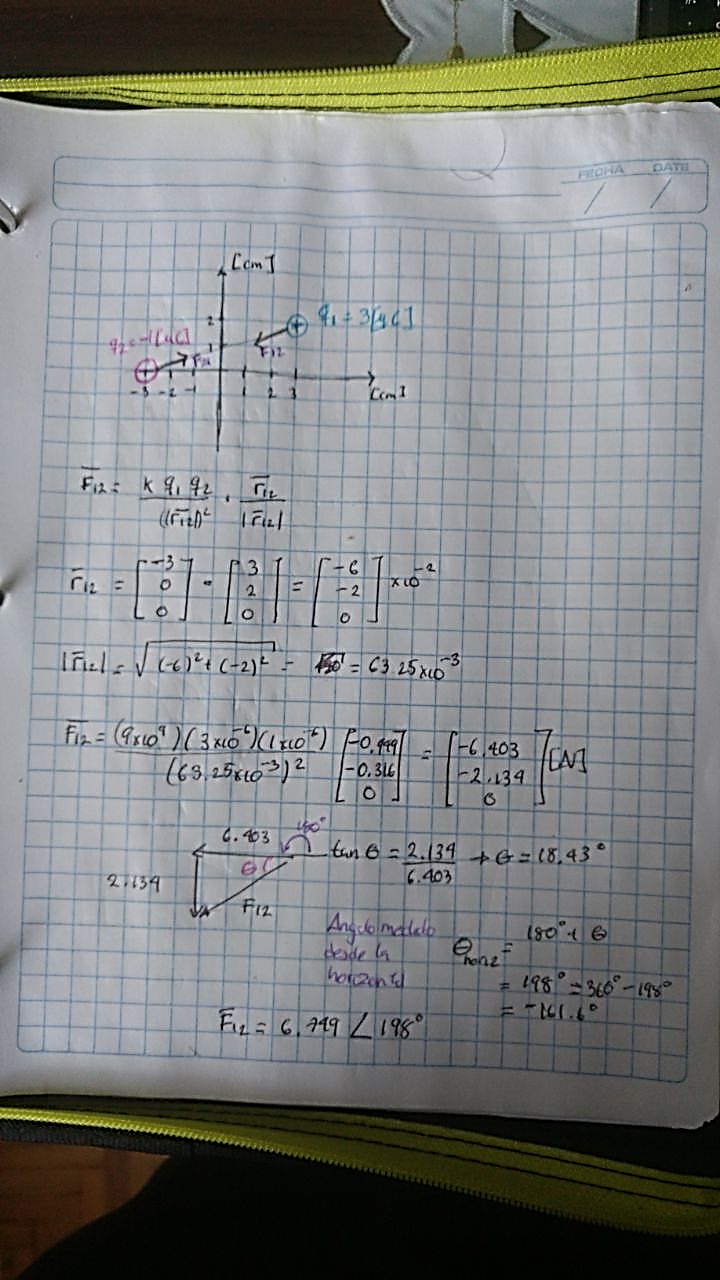 FECHA DATE
/ /
[cm]
2
q₁ = 3[μC]
q₂ = -1[μC]
1
F₁₂
F₂₁
-3 -2 -1 1 2 3
[cm]
F̅₁₂ = K q₁ q₂ / (|r̅₁₂|)² · r̅₁₂ / |r̅₁₂|
r̅₁₂ = [-3 0 0] - [3 2 0] = [-6 -2 0] ×10⁻²
|r̅₁₂| = √((-6)² + (-2)²) = = 63.25×10⁻³
F̅₁₂ = (9×10⁹)(3×10⁻⁶)(1×10⁻⁶) / (63.25×10⁻³)² [-0.949 -0.316 0] = [-6.403 -2.134 0] [N]
6.403 180°
θ tan θ = 2.134 / 6.403 → θ = 18.43°
2.134
F₁₂
Angulo medido
desde la
horizontal
θhoriz = 180° + θ
= 198° = 360° - 198°
= -161.6°
F̅₁₂ = 6.749 ∠ 198°